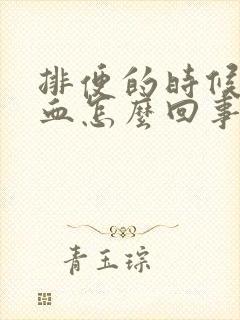 排便的時候
血怎麼回事
青玉琮